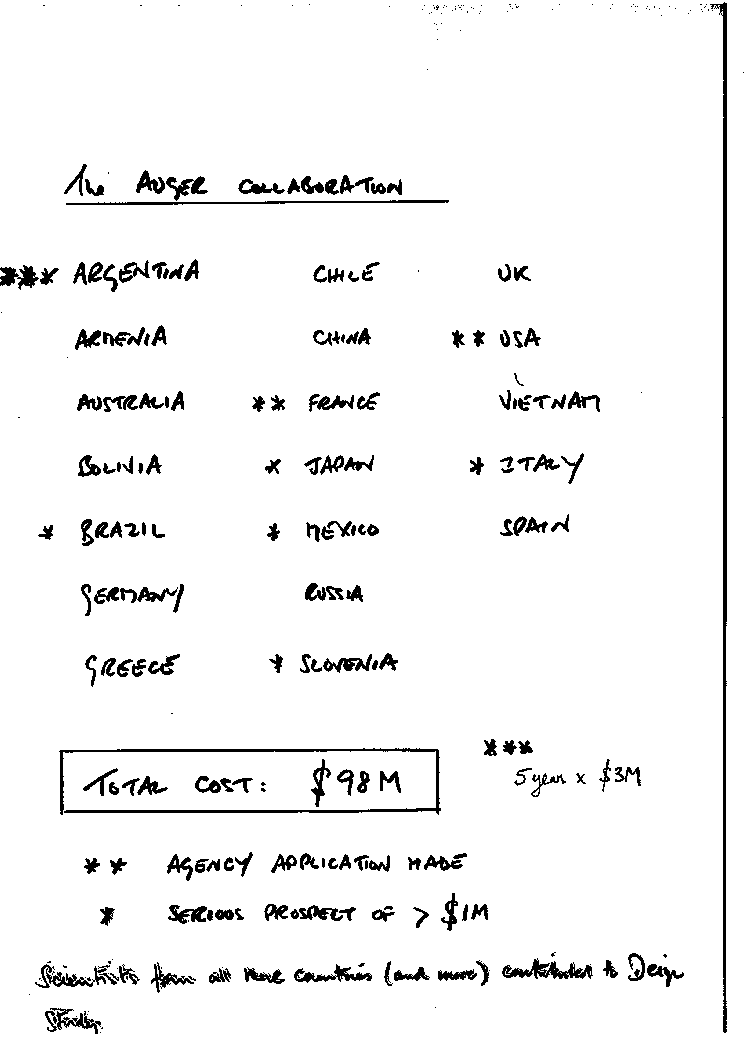 The AUGER COLLABORATION
*** ARGENTINA CHILE UK
ARMENIA CHINA ** USA
AUSTRALIA ** FRANCE VIETNAM
BOLIVIA * JAPAN * ITALY
* BRAZIL * MEXICO SPAIN
GERMANY RUSSIA
GREECE * SLOVENIA
***
TOTAL COST: $98M 5 years x $3M
** AGENCY APPLICATION MADE
* SERIOUS PROSPECT OF > $1M
Scientists from all these countries (and more) contributed to Design
Study